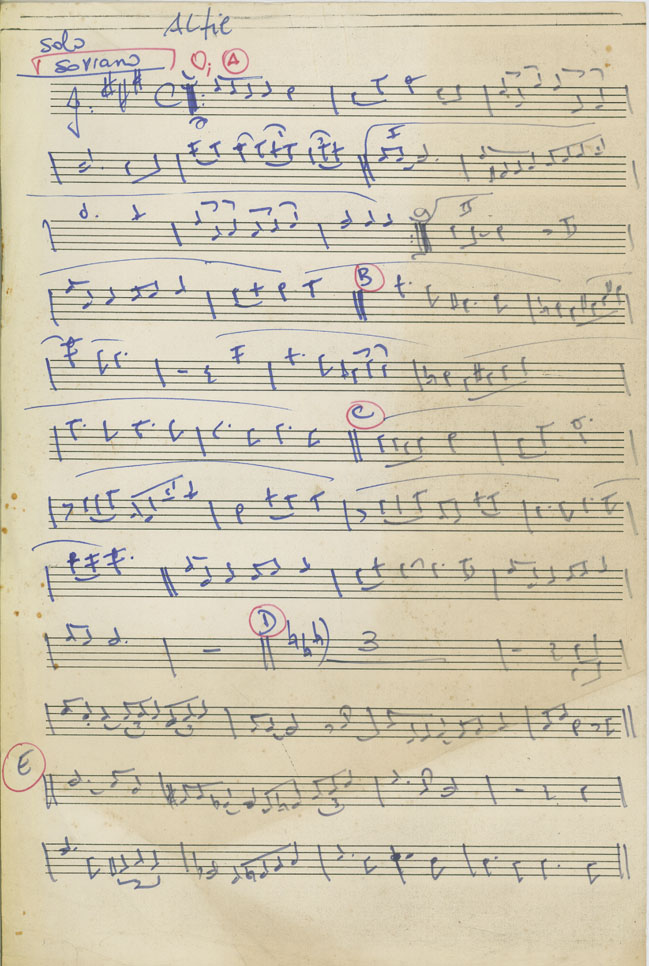 Alfie
Solo
Soriano
A
I
II
B
C
D
3
E